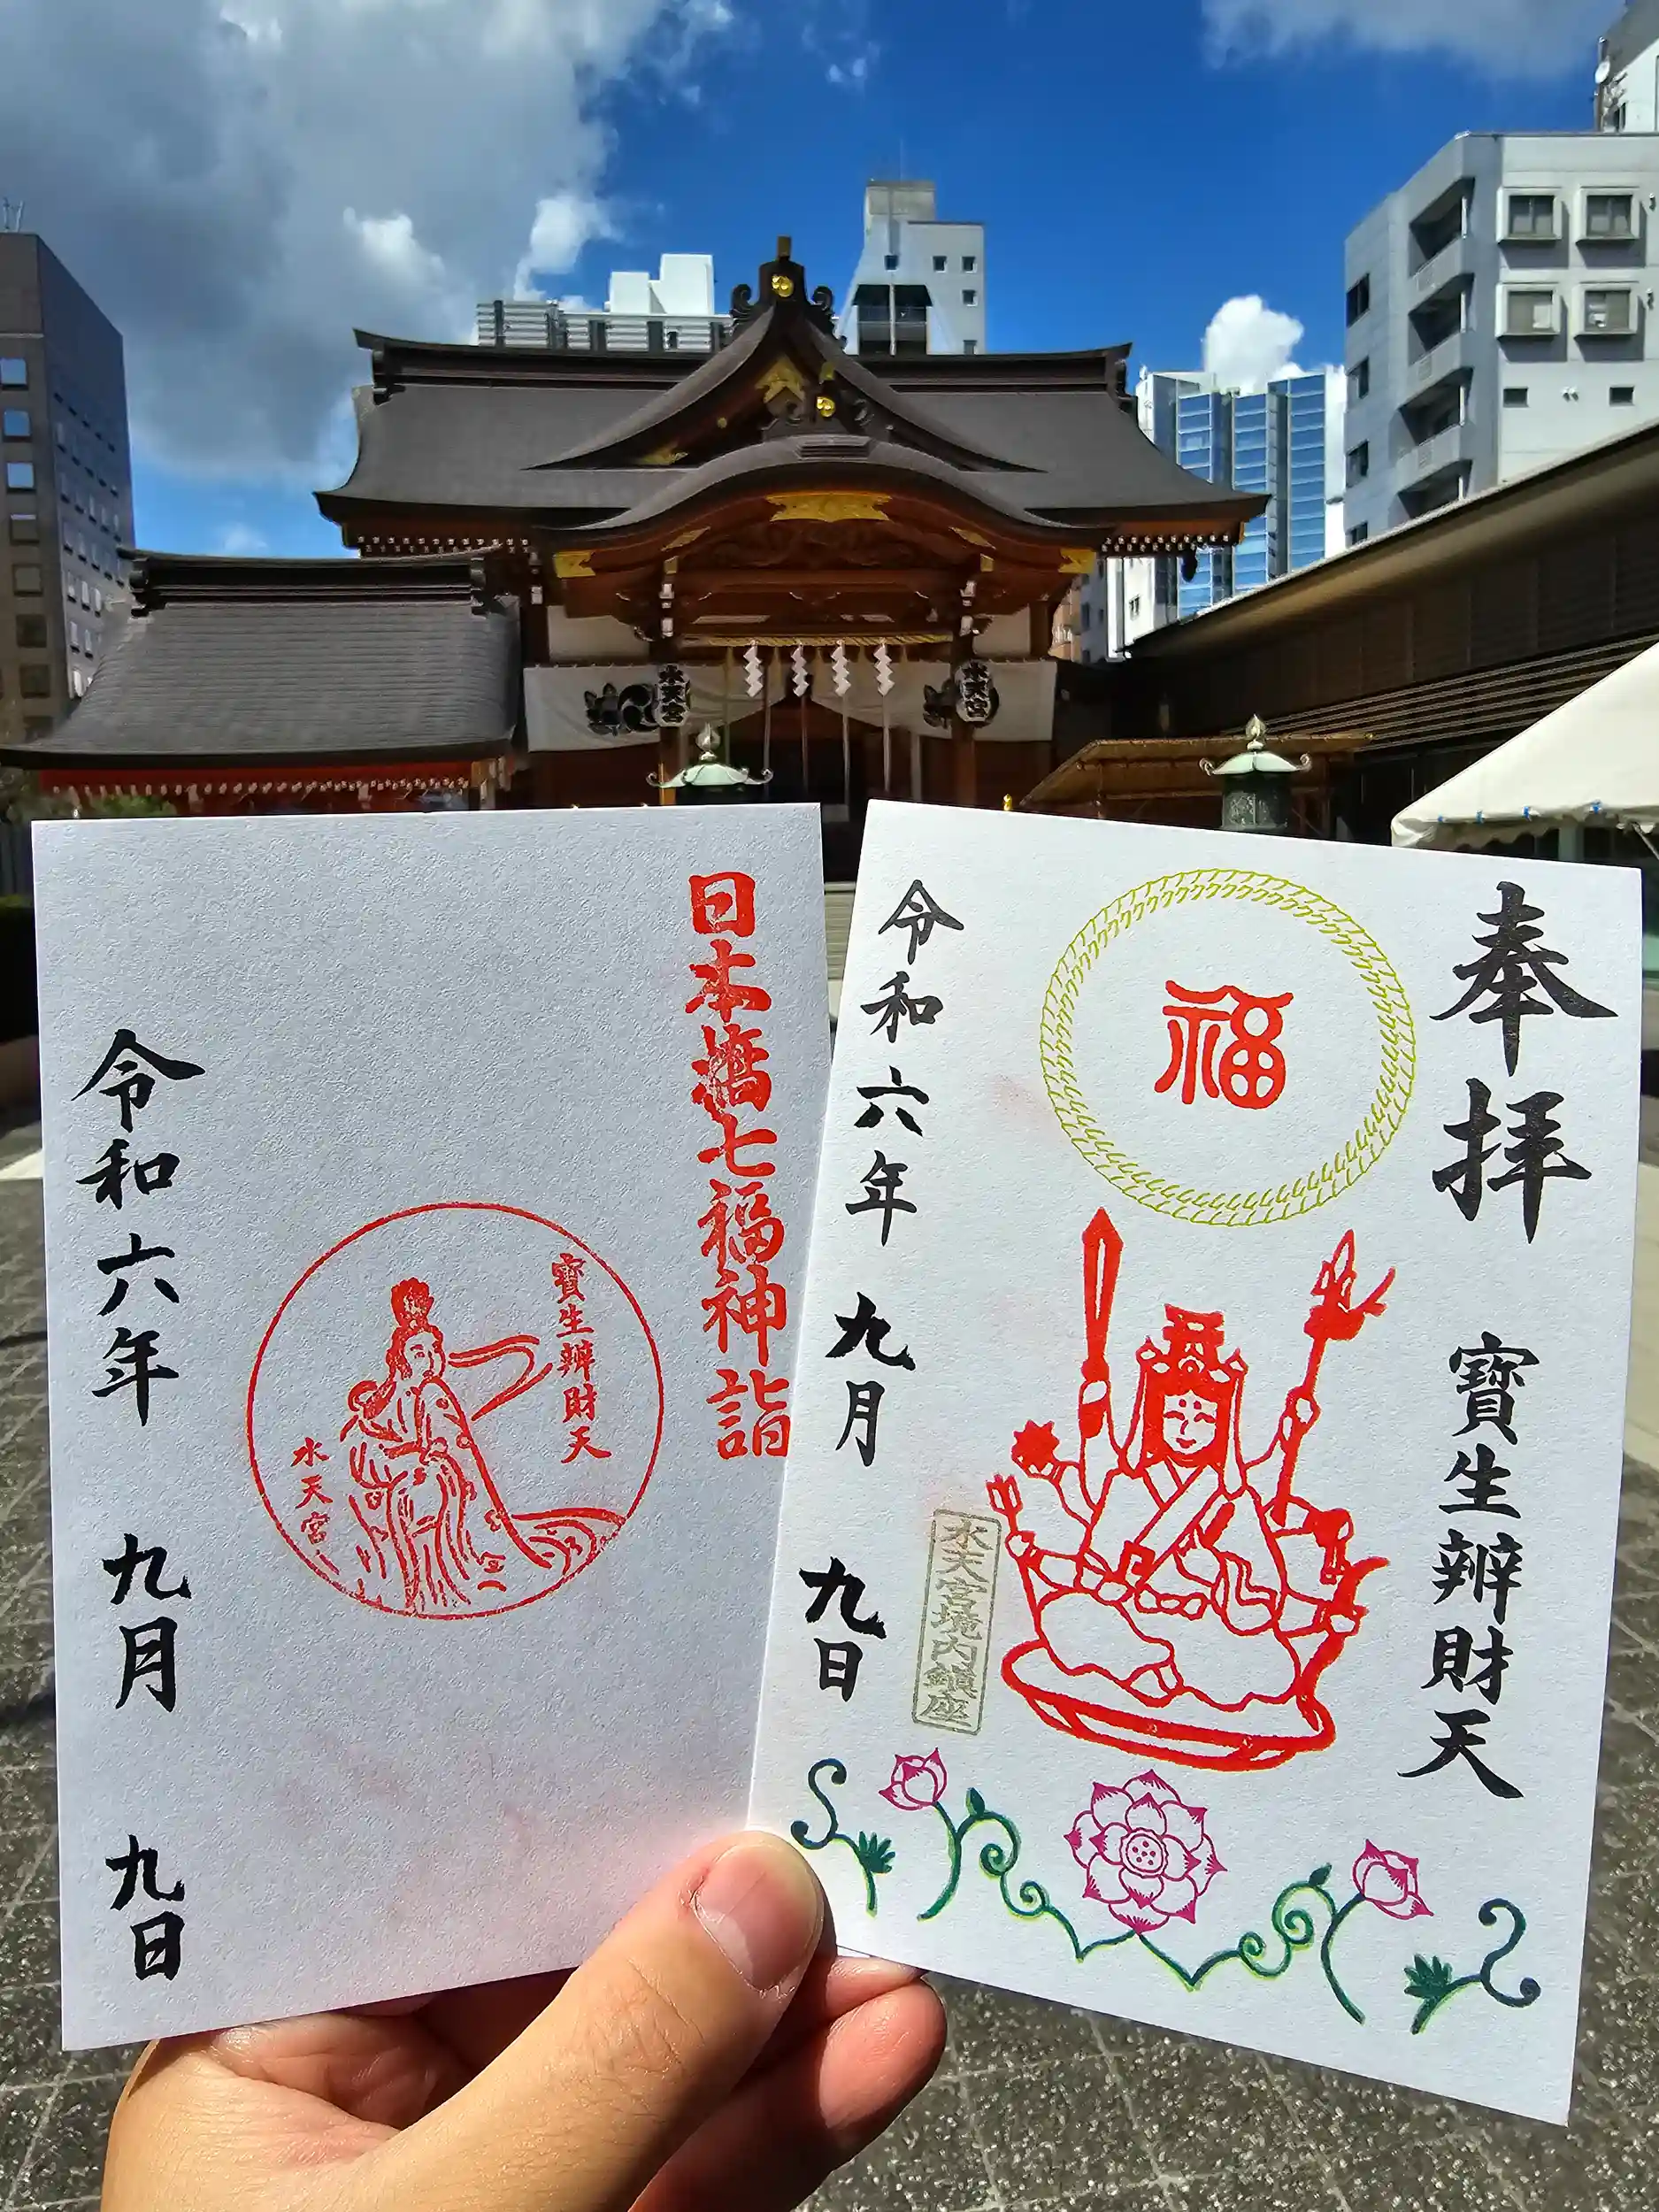 水天宮
水天宮
日本橋七福神詣
寶生辨財天
水天宮
令和六年 九月 九日
奉拝 寶生辨財天
福
水天宮境内鎮座
令和六年 九月 九日